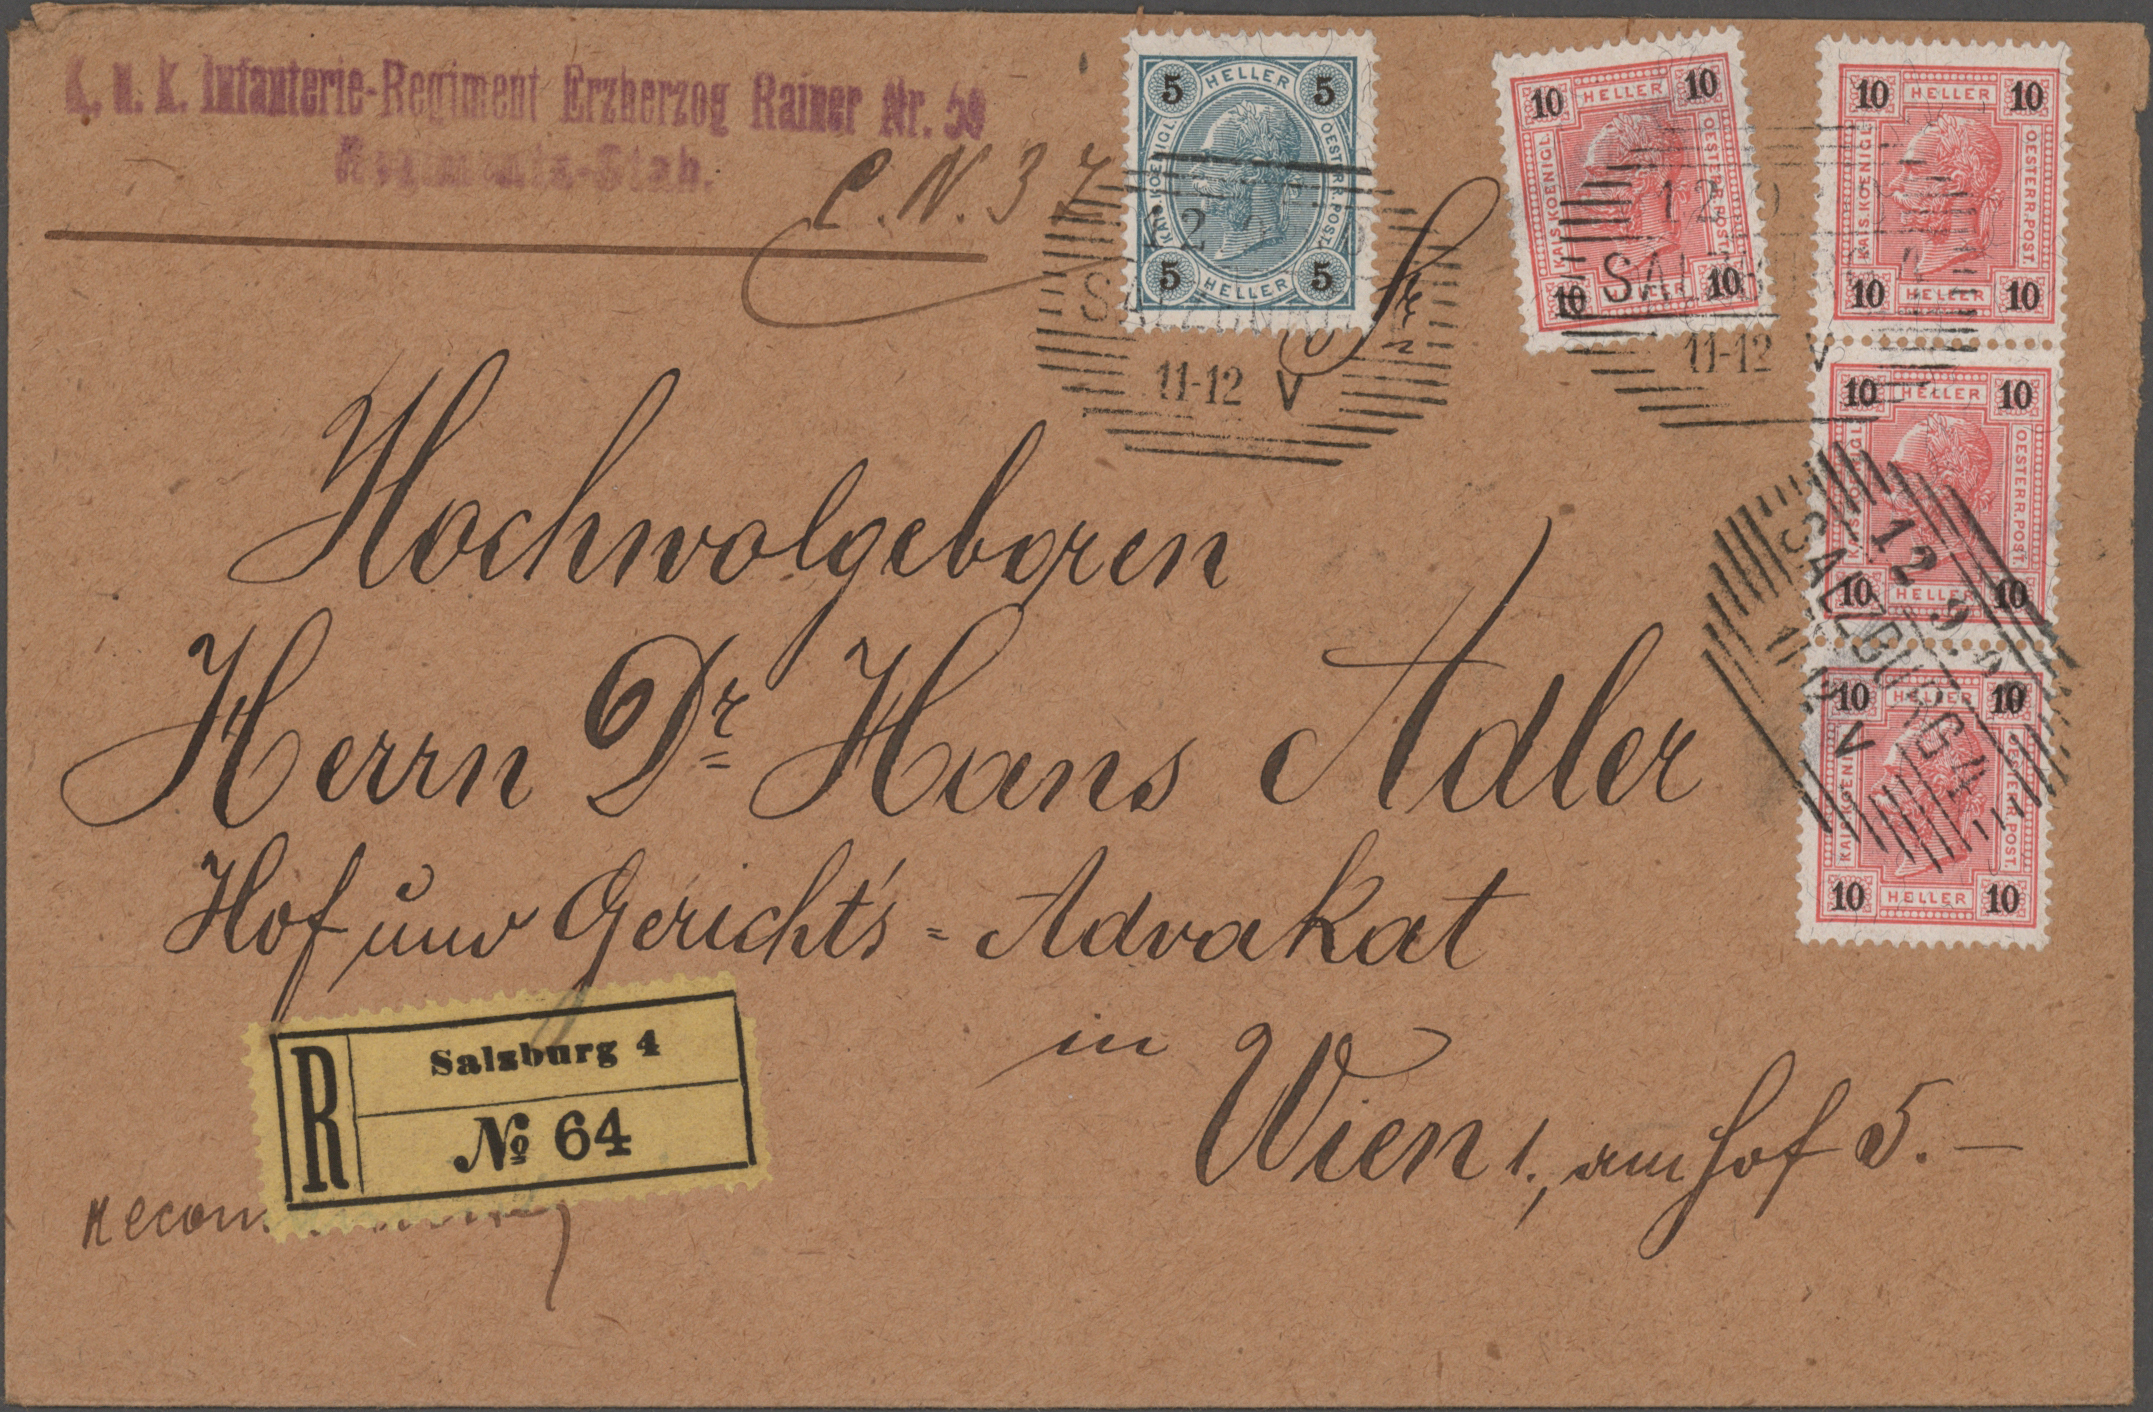 K. u. K. Infanterie-Regiment Erzherzog Rainer Nr. 59
Regiments-Stab.
C. N. 37
5 HELLER 5
KAIS. KOENIGL. OESTERR. POST.
5 HELLER 5
10 HELLER 10
KAIS. KOENIGL. OESTERR. POST.
10 HELLER 10
10 HELLER 10
KAIS. KOENIGL. OESTERR. POST.
10 HELLER 10
10 HELLER 10
KAIS. KOENIGL. OESTERR. POST.
10 HELLER 10
10 HELLER 10
KAIS. KOENIGL. OESTERR. POST.
10 HELLER 10
SALZBURG
11-12 V
12
SALZBURG 4
11-12 V
12 9
SALZBURG 4
V
Hochwolgeboren
Herrn Dr Hans Adler
Hof und Gericht's=Advokat
in
Wien 1., am Hof 5.—
R
Salzburg 4
№ 64